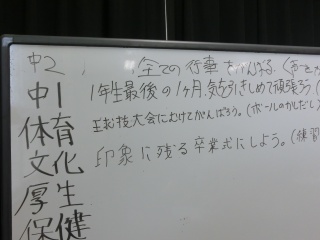 中2 全ての行事をがんばる。(
中1 1年生最後の1ヶ月、気を引きしめて頑張ろう(
体育 球技大会にむけてがんばろう。(ボールのかしだし)
文化 印象に残る卒業式にしよう。(練習
厚生
保健